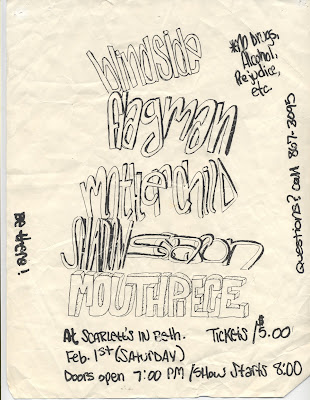 Windside
flagman
MOTHERCHILD
MOUTHPIECE
*No Drugs,
Alcohol,
Prejudice,
etc.
Questions? Call 867-3095
Be there!
At Scarlett's IN Beth. Tickets /$5.00
Feb. 1st (SATURDAY)
Doors open 7:00 PM / Show Starts 8:00